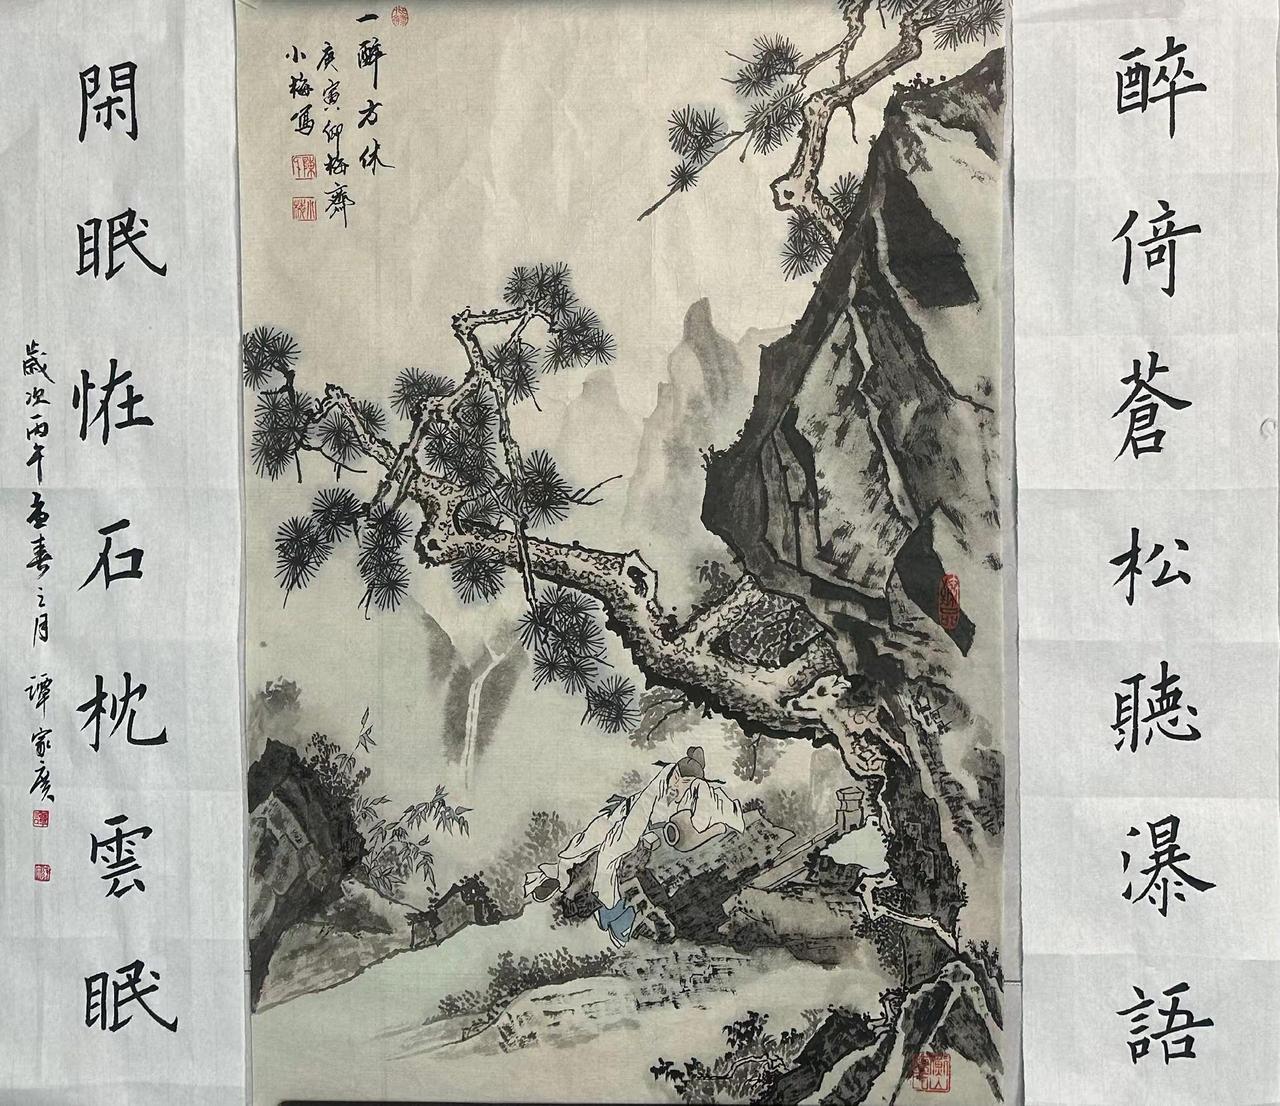 醉倚蒼松聽瀑語
一醉方休
庚寅仰梅齋
小梅寫
閑眠恠石枕雲眠
歲次丙午孟春之月 譚家廣